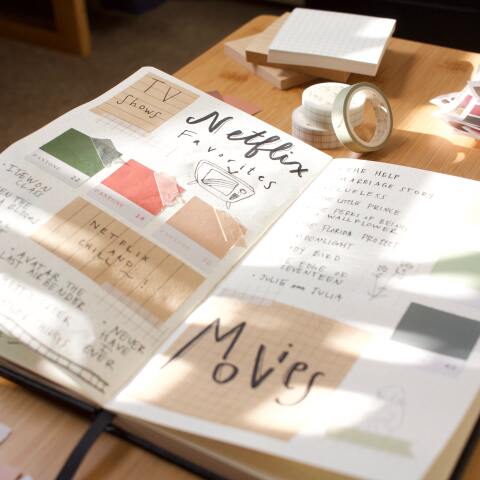 TV
Shows
Netflix
Favorites
PANTONE
22
PANTONE
24
ITEWON
CLASS
NETFLIX
AND
CHILL
AVATAR THE
LAST AIRBENDER
NEVER
HAVE
EVER
THE HELP
MARRIAGE STORY
CLUELESS
LITTLE PRINCE
PERKS OF BEING
WALLFLOWER
FLORIDA PROJECT
MOONLIGHT
LADY BIRD
EDGE OF
SEVENTEEN
JULIE AND JULIA
Movies